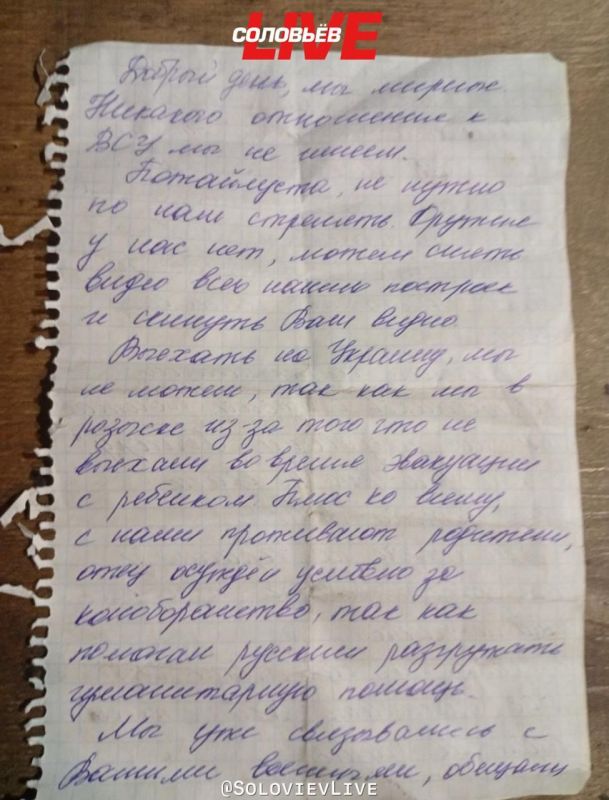 СОЛОВЬЁВ
LIVE
Добрый день, мы мирные.
Никакого отношения к
ВСУ мы не имеем.
Пожайлуста, не нужно
по нам стрелять. Оружие
у нас нет, можем снять
видео всех наших построек
и скинуть Вам видио.
Выехать на Украину, мы
не можем, так как мы в
розыске из-за того что не
выехали во время эвакуации
с ребёнком. Плюс ко всему,
с нами проживают родители,
отец осуждён условно за
колоборанство, так как
помогал русским разгружать
гуманитарную помощь.
Мы уже связывались с
Вашими военными, обещали
@SOLOVIEVLIVE